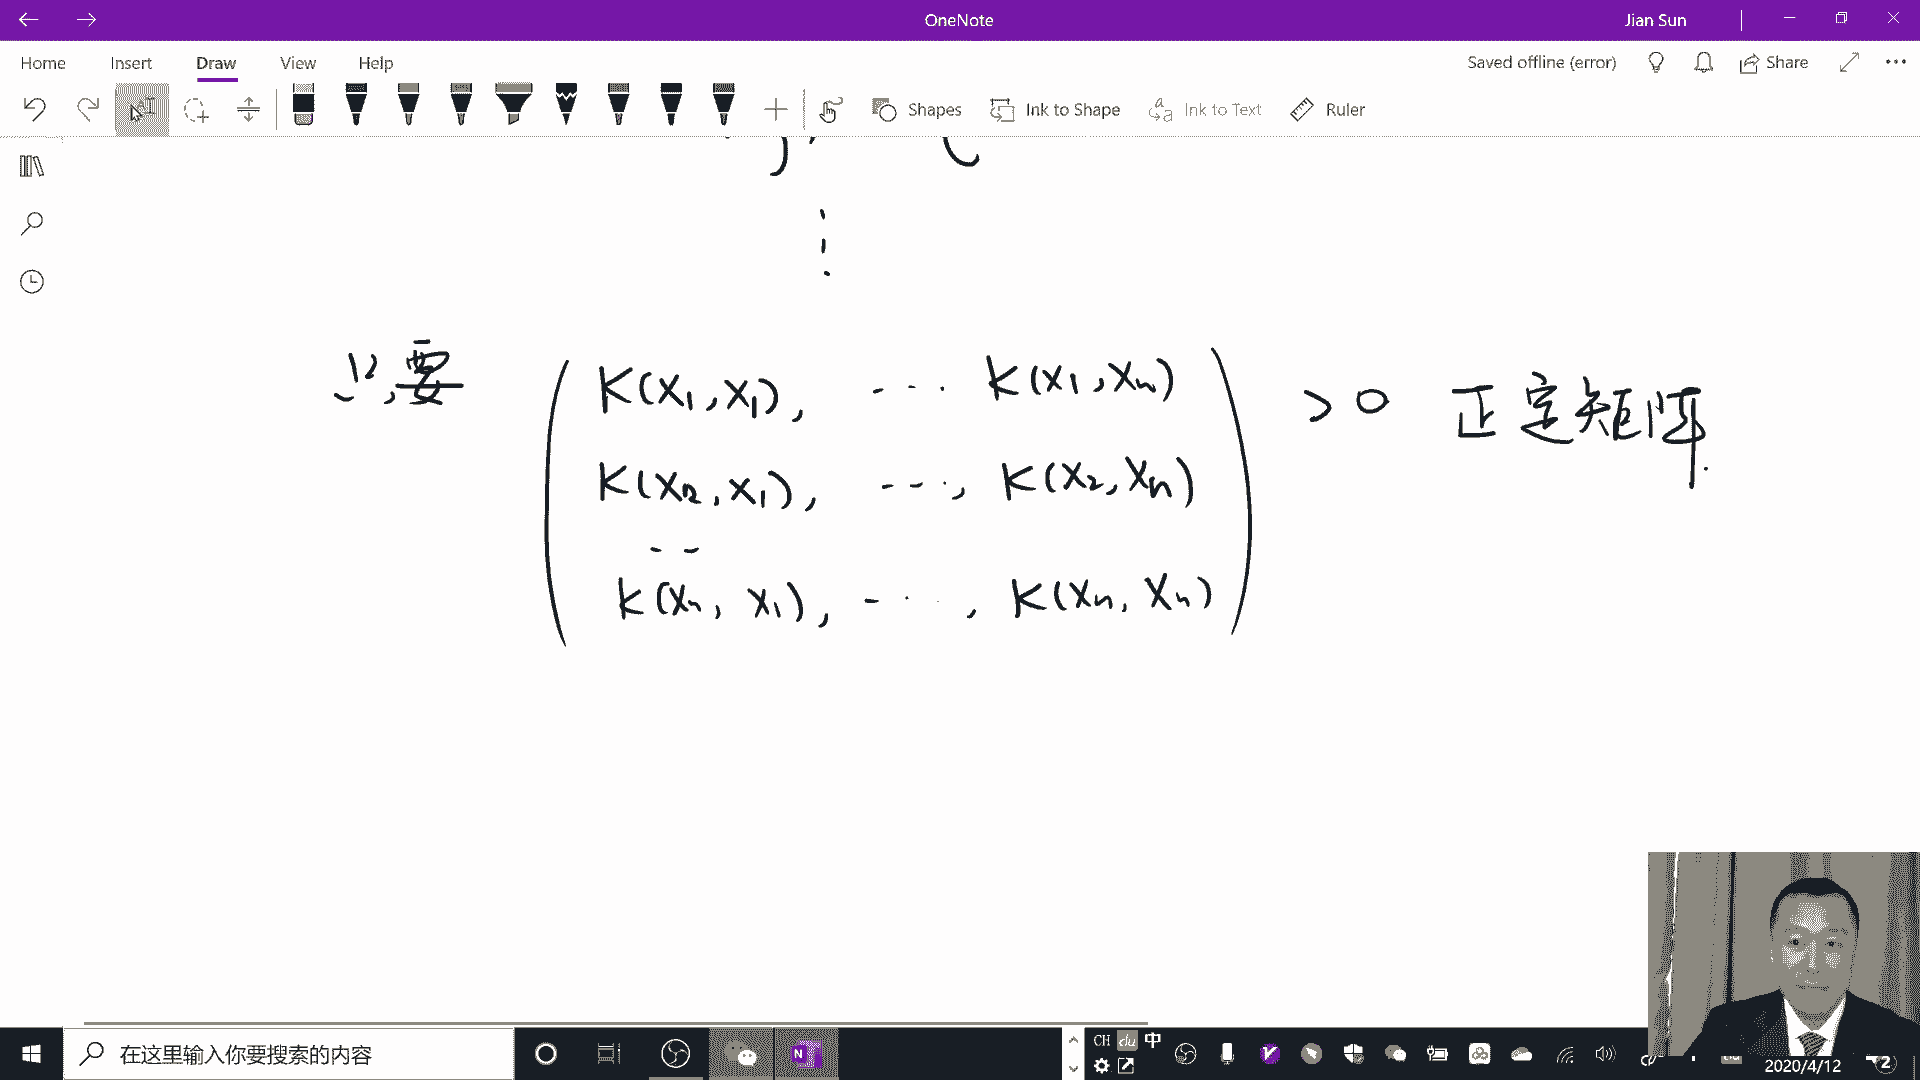 OneNote
Jian Sun
Home Insert Draw View Help
Saved offline (error) Share
Shapes Ink to Shape Ink to Text Ruler
只要
K(x₁,x₁), --- K(x₁,xₙ)
> 0 正定矩阵.
K(x₂,x₁), ---, K(x₂,xₙ)
--
K(xₙ, x₁), - - -, K(xₙ, xₙ)
在这里输入你要搜索的内容
CH du 中
2020/4/12
2